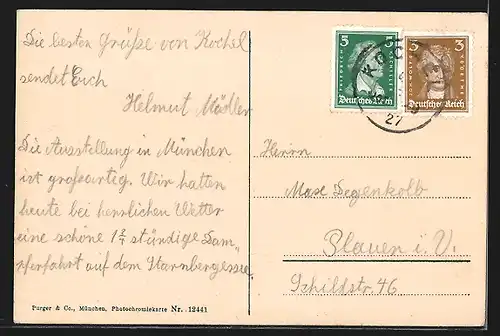 Die besten Grüße von Kochel
sendet Euch
Helmut Mädler
Die Ausstellung in München
ist großartig. Wir hatten
heute bei herrlichen Wetter
eine schöne 1 3/4 stündige Dam„
pferfahrt auf dem Starnbergessee.
Purger & Co., München, Photochromiekarte Nr. 12441
5 5
FRIEDRICH
Deutsches Reich
3 3
Deutsches Reich
KOCH
27
Herrn
Max Degenkolb
Plauen i. V.
Schildstr. 46